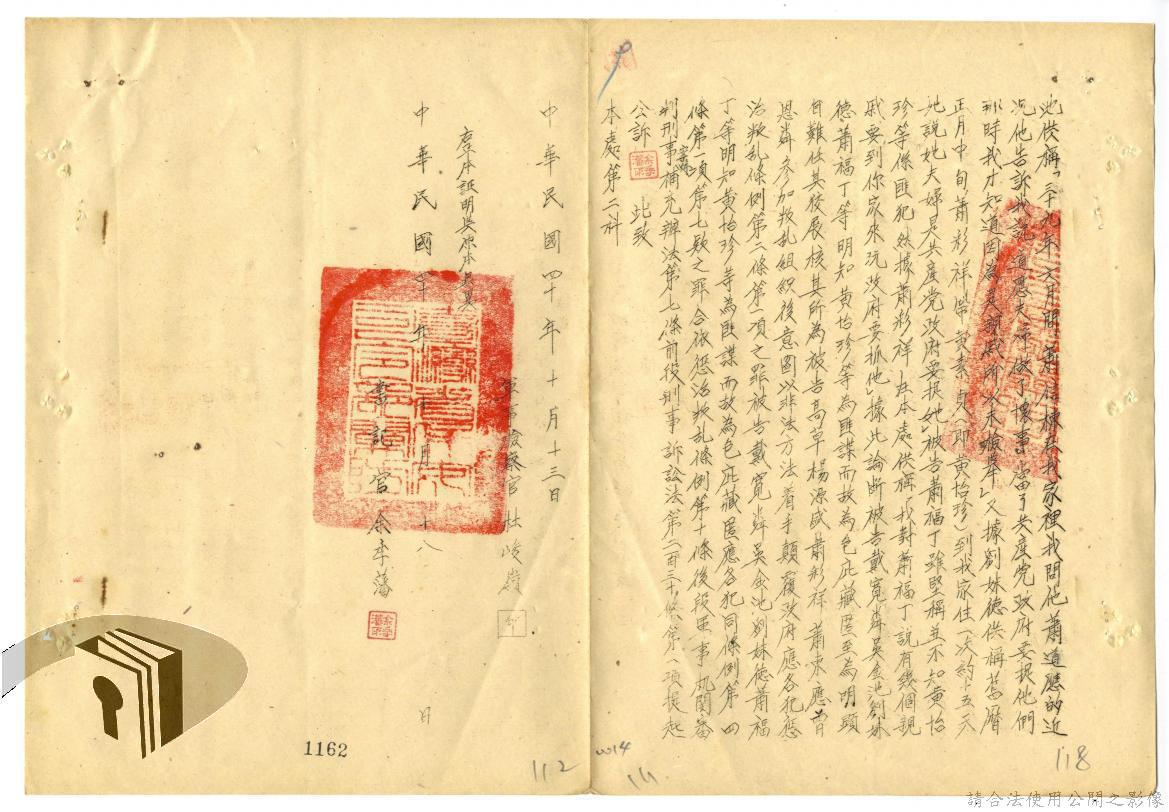 池供稱「三十九年六月間蕭信棟在我家裡我問他蕭道應的近
況他告訴我說道應夫婦做了壞事當了共產党政府要捉他們
那時我才知道因為是親戚所以未檢舉」又據劉妹德供稱舊曆
正月中旬蕭彩祥帶黃素貞(即黃怡珍)到我家住一次約十五天
她說她夫婦是共產党政府要捉她」被告蕭福丁雖堅稱並不知黃怡
珍等係匪犯然據蕭彩祥在本處供稱「我對蕭福丁說有幾個親
戚要到你家來玩政府要抓他」據此論斷被告戴寬舜吳金池劉妹
德蕭福丁等明知黃怡珍等為匪諜而故為包庇藏匿至為明顯
自難任其狡展核其所為被告高草楊源盛蕭彩祥蕭東應曾
恩舜參加叛乱組織後意圖以非法方法着手顛覆政府應各犯懲
治叛乱條例第二條第一項之罪被告戴寬舜吳金池劉妹德蕭福
丁等明知黃怡珍等為匪諜而故為包庇藏匿應各犯同條例第四
條第一項第七款之罪合依懲治叛乱條例第十條後段軍事機關審
判刑事案件補充辦法第七條前段刑事訴訟法第二百三十條第一項提起
公訴 此致
本處第二科
中華民國四十年十月十三日
軍事檢察官杜峻嶺 印
右正本証明與原本無異
中華民國四十年十月十八日
書記官余李藩
1162
112
111
118
請合法使用公開之影像